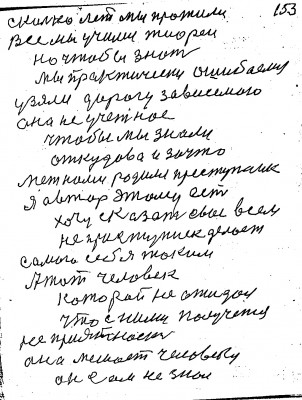 сколко лет мы прожили 153
Все мы учили теореи
но чтобы знот
мы практически ошибаемя
узяли дорогу зависемого
она не учетное
чтобы мы знали
откудова и зачто
родили преступлик
я автор этому ест
хочу сказат свое всем
не приступник делает
самого себя таким
Атот человек
которай не ожидал
что с ними получется
не приятност
она мешает человеку
он сам не знал